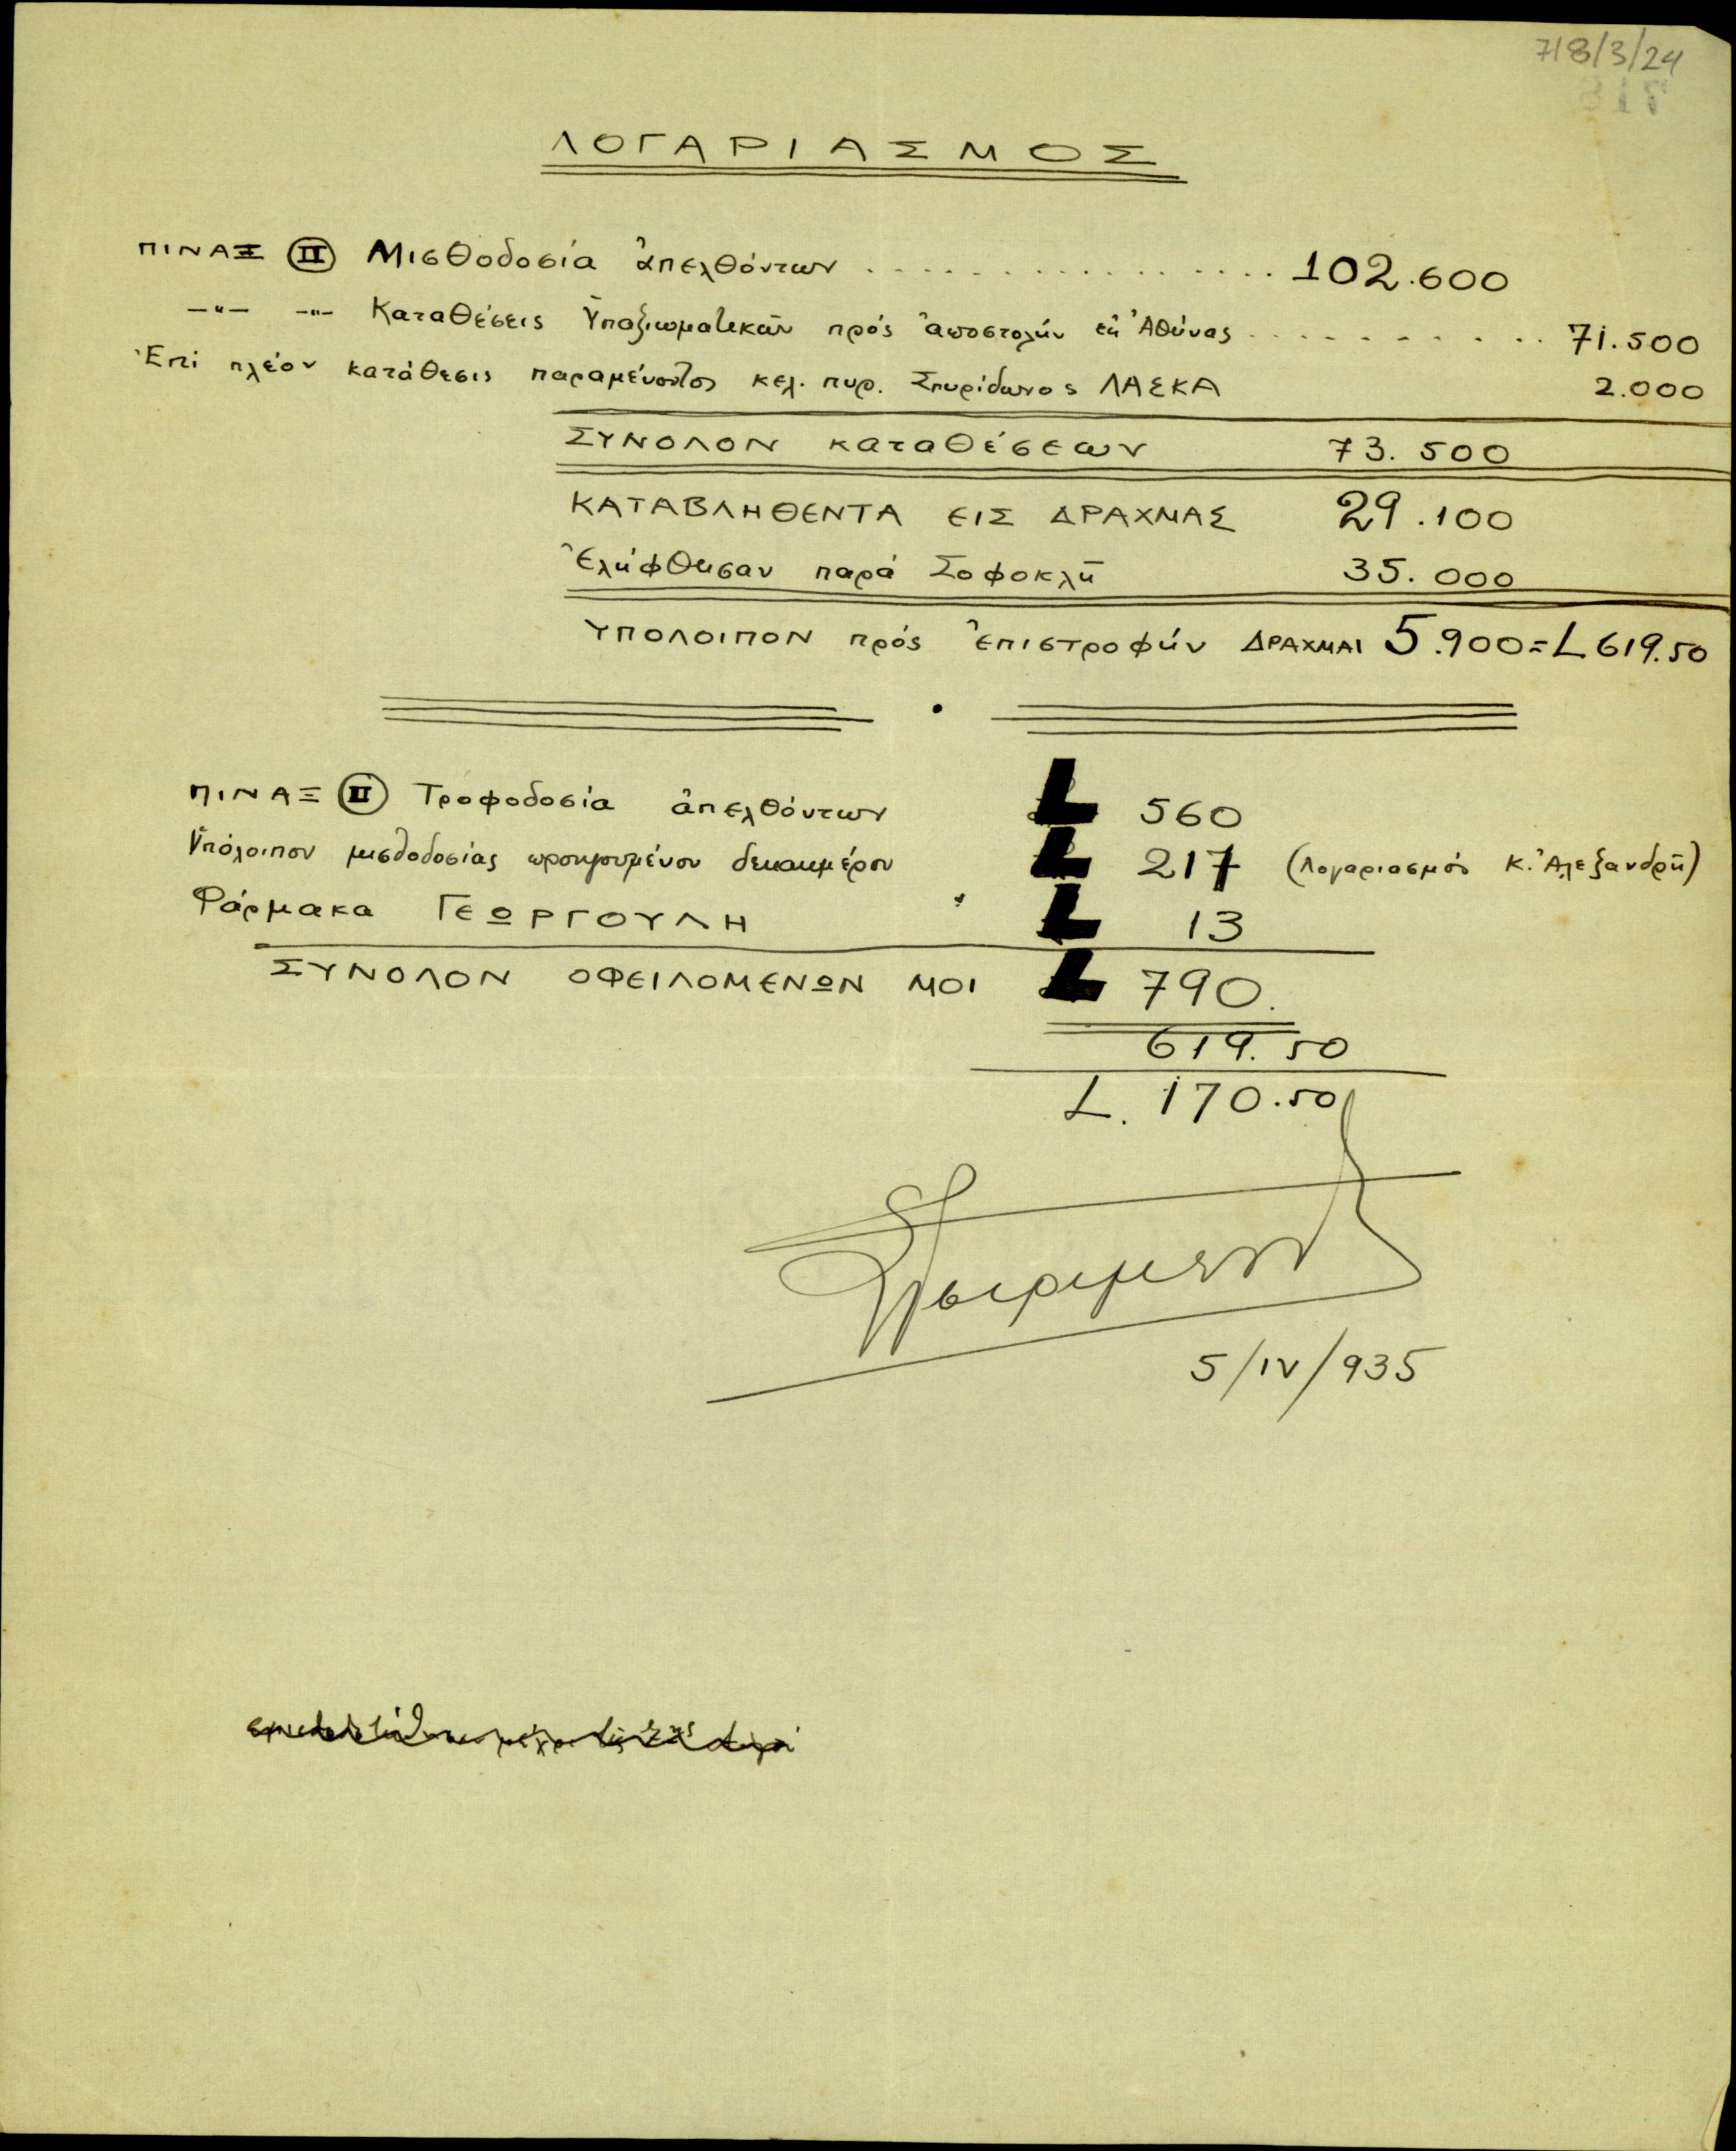 718/3/24
718
ΛΟΓΑΡΙΑΣΜΟΣ
ΠΙΝΑΞ ΙΙ Μισθοδοσία ἀπελθόντων . . . . . . . . . . . . . . . . 102.600
–"– –"– Καταθέσεις Ὑπαξιωματικῶν πρός ἀποστολήν εἰς Ἀθήνας . . . . . . . . . . 71.500
Ἐπί πλέον κατάθεσις παραμένοντος κελ. πυρ. Σπυρίδωνος ΛΑΣΚΑ 2.000
ΣΥΝΟΛΟΝ καταθέσεων 73.500
ΚΑΤΑΒΛΗΘΕΝΤΑ ΕΙΣ ΔΡΑΧΜΑΣ 29.100
Ἐλήφθησαν παρά Σοφοκλῆ 35.000
ΥΠΟΛΟΙΠΟΝ πρός ἐπιστροφήν ΔΡΑΧΜΑΙ 5.900=L 619.50
ΠΙΝΑΞ ΙΙ Τροφοδοσία ἀπελθόντων L 560
Ὑπόλοιπον μισθοδοσίας προηγουμένου δεκαημέρου L 217 (Λογαριασμός Κ. Ἀλεξανδρῆ)
Φάρμακα ΓΕΩΡΓΟΥΛΗ L 13
ΣΥΝΟΛΟΝ ΟΦΕΙΛΟΜΕΝΩΝ ΜΟΙ L 790.
619.50
L. 170.50
5/IV/935